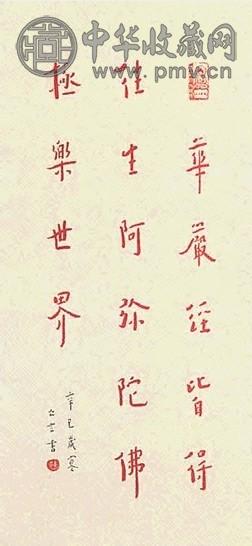 中华收藏网
www.pmv.cn
華嚴經皆得
往生阿弥陀佛
極樂世界
辛巳歲寒
亡言書